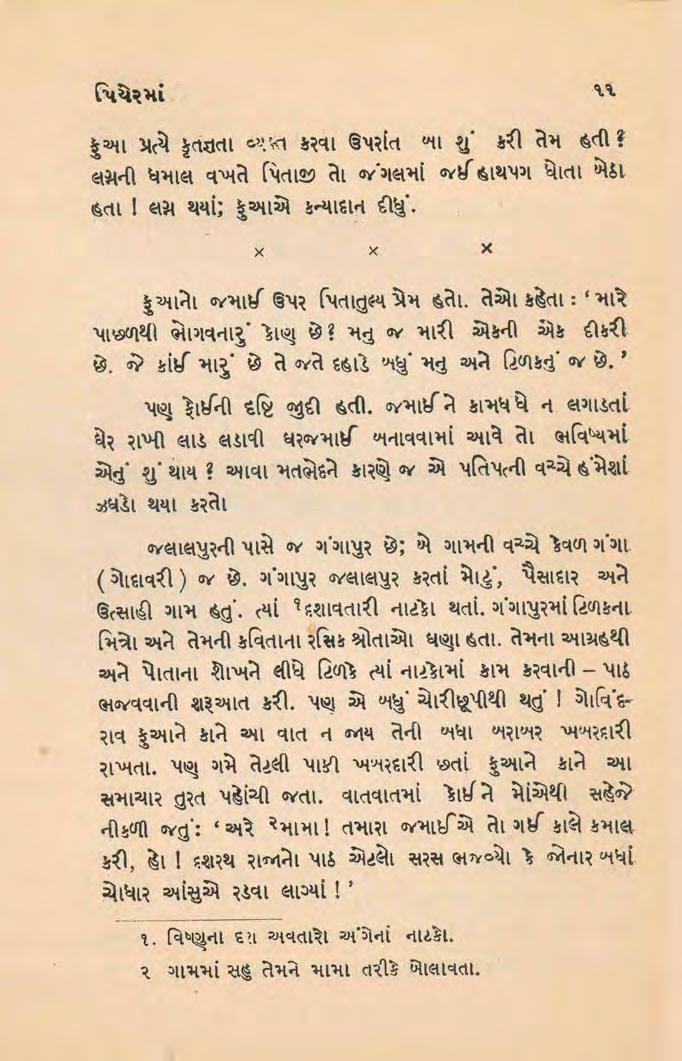 પિયેરમાં ૧૧
ફુઆ પ્રત્યે કૃતજ્ઞતા વ્યક્ત કરવા ઉપરાંત બા શું કરી તેમ હતી ?
લગ્નની ધમાલ વખતે પિતાજી તો જંગલમાં જઈ હાથપગ ધોતા બેઠા
હતા ! લગ્ન થયાં; ફુઆએ કન્યાદાન દીધું.
× × ×
ફુઆનો જમાઈ ઉપર પિતાતુલ્ય પ્રેમ હતો. તેઓ કહેતા : ‘ મારે
પાછળથી ભોગવનારું કોણ છે? મનુ જ મારી એકની એક દીકરી
છે. જે કાંઈ મારું છે તે જતે દહાડે બધું મનુ અને ટિળકનું જ છે. ’
પણ ફોઈની દૃષ્ટિ જુદી હતી. જમાઈને કામધંધે ન લગાડતાં
ઘેર રાખી લાડ લડાવી ઘરજમાઈ બનાવવામાં આવે તો ભવિષ્યમાં
એનું શું થાય ? આવા મતભેદને કારણે જ એ પતિપત્ની વચ્ચે હંમેશાં
ઝઘડો થયા કરતો
જલાલપુરની પાસે જ ગંગાપુર છે; બે ગામની વચ્ચે કેવળ ગંગા
( ગોદાવરી ) જ છે. ગંગાપુર જલાલપુર કરતાં મોટું, પૈસાદાર અને
ઉત્સાહી ગામ હતું. ત્યાં ૧દશાવતારી નાટકો થતાં. ગંગાપુરમાં ટિળકના
મિત્રો અને તેમની કવિતાના રસિક શ્રોતાઓ ઘણા હતા. તેમના આગ્રહથી
અને પોતાના શોખને લીધે ટિળકે ત્યાં નાટકોમાં કામ કરવાની – પાઠ
ભજવવાની શરૂઆત કરી. પણ એ બધું ચોરીછૂપીથી થતું ! ગોવિંદ-
રાવ ફુઆને કાને આ વાત ન જાય તેની બધા બરાબર ખબરદારી
રાખતા. પણ ગમે તેટલી પાકી ખબરદારી છતાં ફુઆને કાને આ
સમાચાર તુરત પહોંચી જતા. વાતવાતમાં કોઈને મોંએથી સહેજે
નીકળી જતું : ‘ અરે ૨મામા! તમારા જમાઈએ તો ગઈ કાલે કમાલ
કરી, હો ! દશરથ રાજાનો પાઠ એટલો સરસ ભજવ્યો કે જોનાર બધાં
ચોધાર આંસુએ રડવા લાગ્યાં ! ’
૧. વિષ્ણુના દશ અવતારો અંગેનાં નાટકો.
૨ ગામમાં સહુ તેમને મામા તરીકે બોલાવતા.